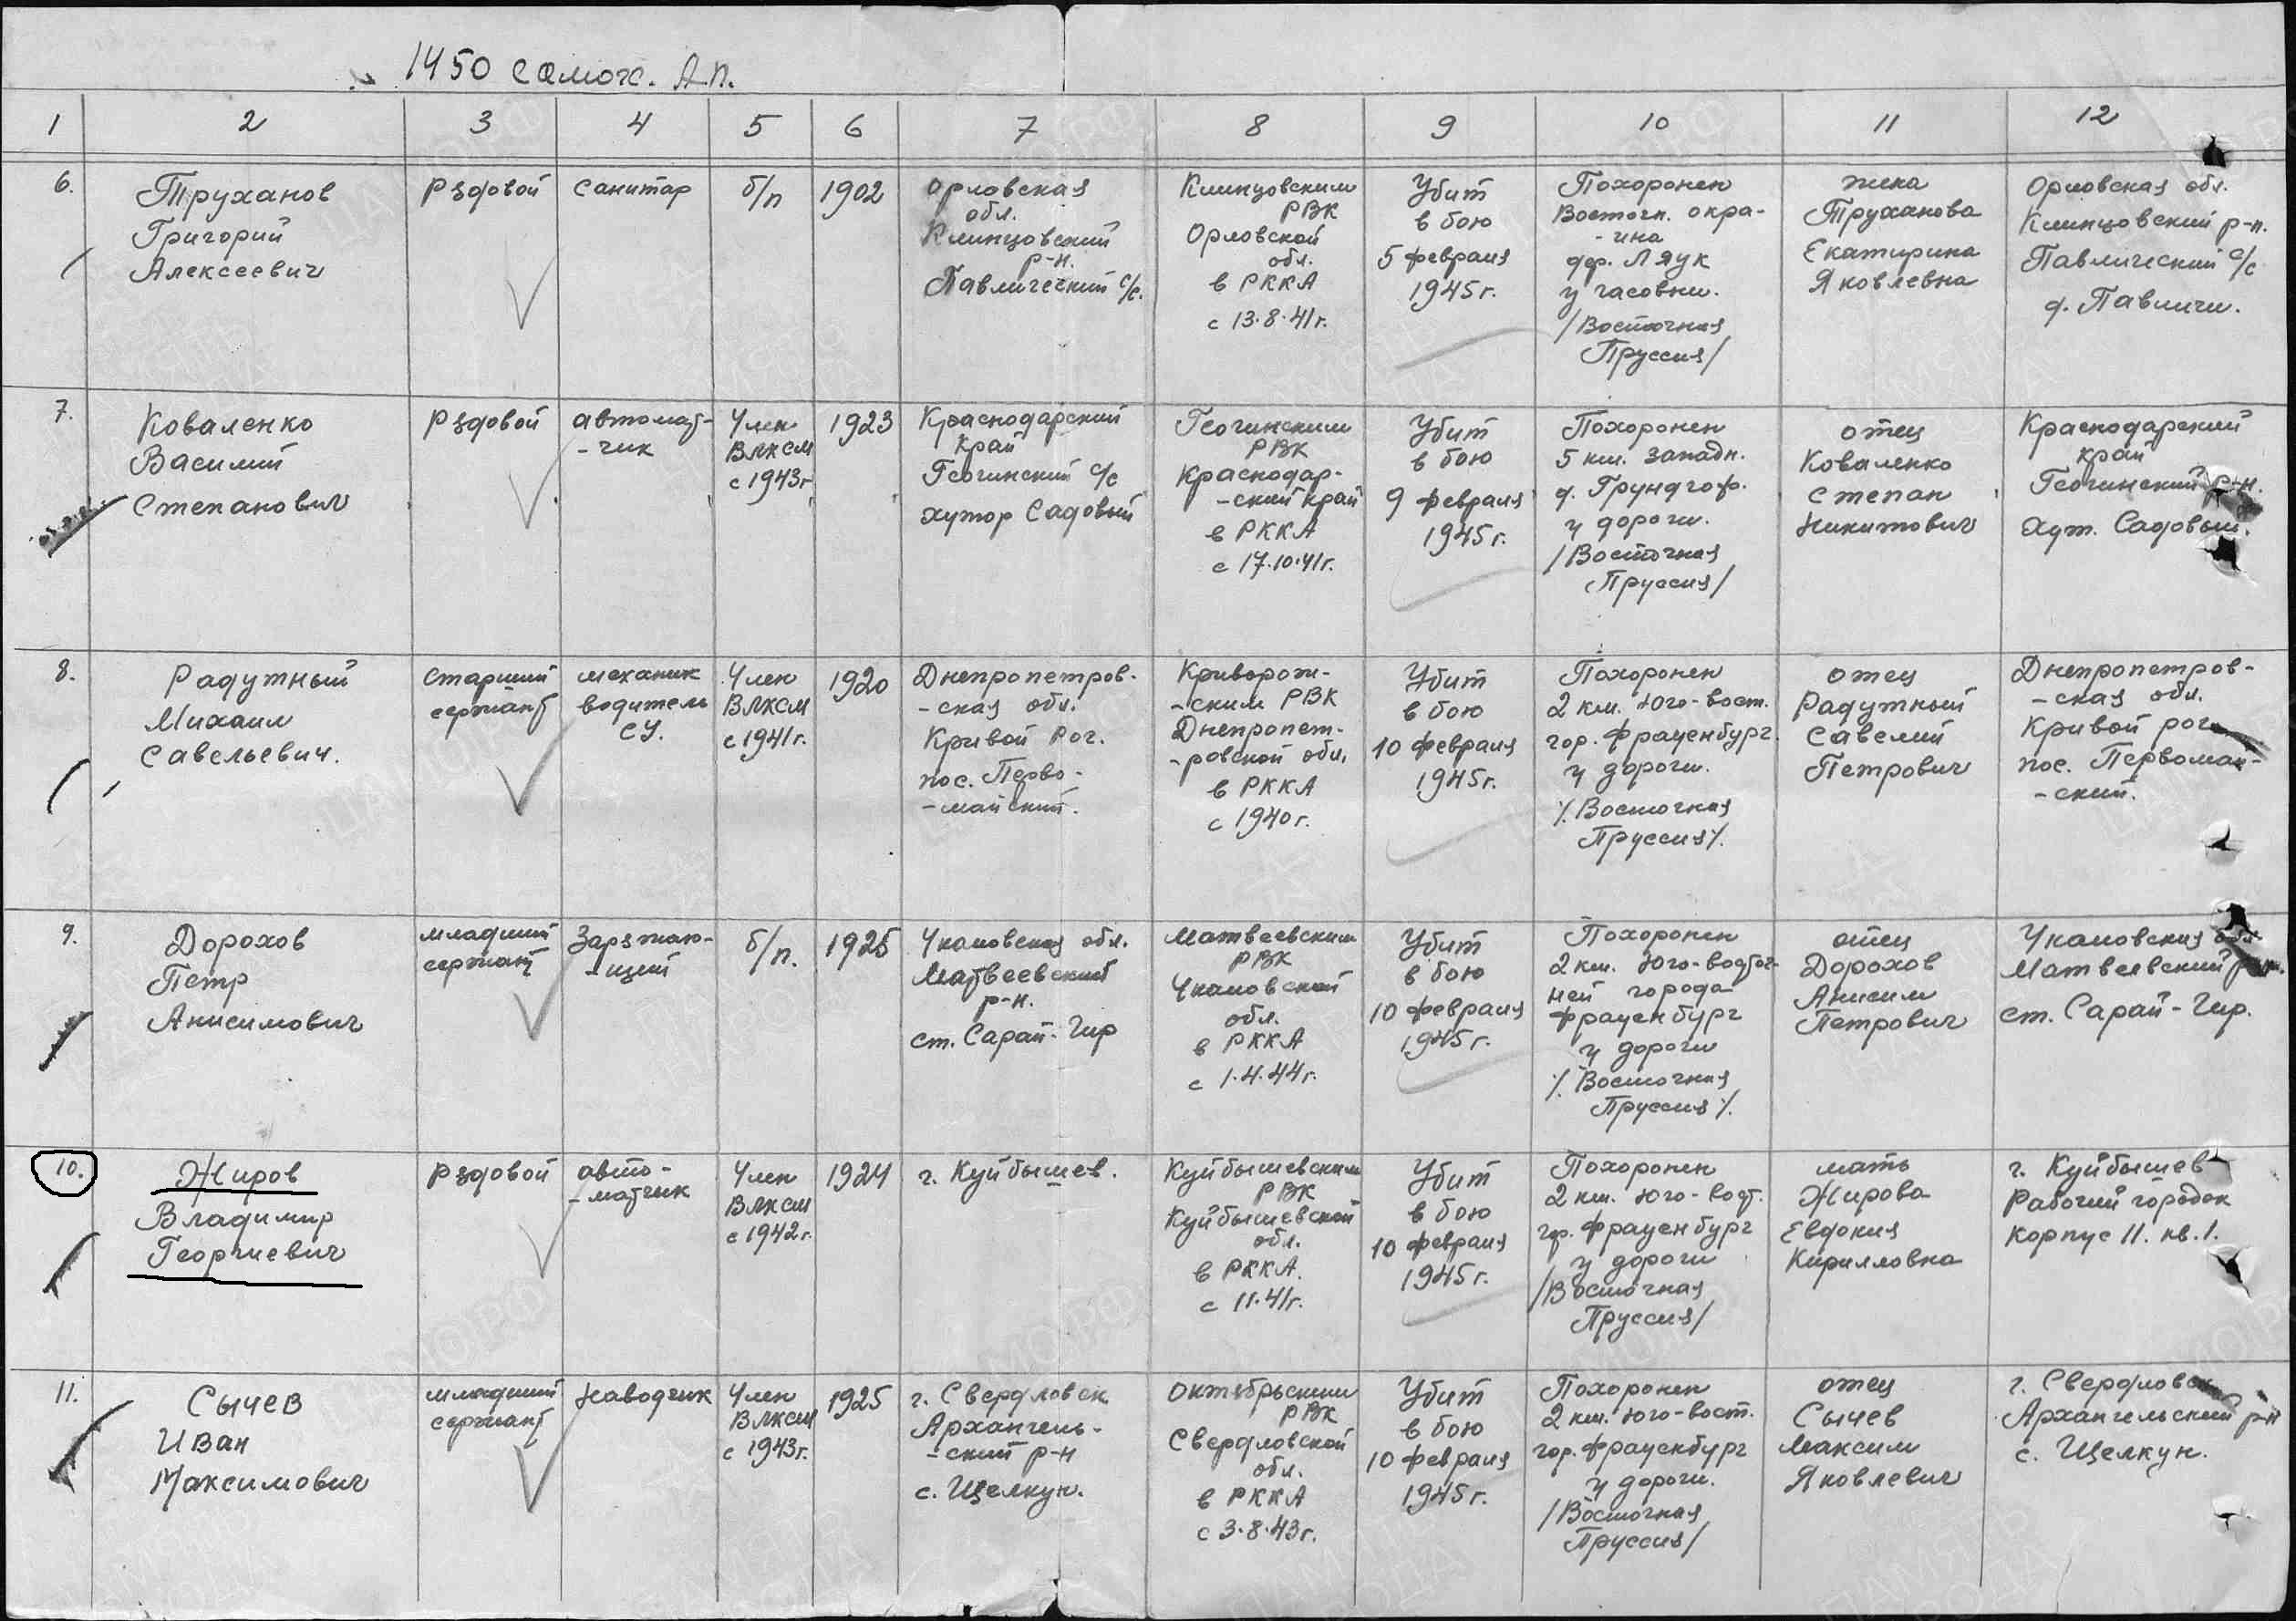 1450 самох. А.П.
1 2 3 4 5 6 7 8 9 10 11 12
6.
Труханов
Григорий
Алексеевич
Рядовой
санитар
б/п
1902
Орловская
обл.
Клинцовский
р-н.
Павлический с/с.
Клинцовским
РВК
Орловской
обл.
в РККА
с 13.8.41г.
Убит
в бою
5 февраля
1945г.
Похоронен
Восточн. окра-
-ина
дер. Ляук
у часовни.
/Восточная
Пруссия/
жена
Труханова
Екатирина
Яковлевна
Орловская обл.
Клинцовский р-н.
Павлический с/с
д. Павличи.
7.
Коваленко
Василий
Степанович
Рядовой
автомат-
-чик
Член
ВЛКСМ
с 1943г
1923
Краснодарский
край
Геогинский с/с
хутор Садовый
Геогинским
РВК
Краснодар-
-ский край
в РККА
с 17.10.41г.
Убит
в бою
9 февраля
1945г.
Похоронен
5 км. западн.
д. Грундгоф.
у дороги.
/Восточная
Пруссия/
отец
Коваленко
Степан
Никитович
Краснодарский
край
Геогинский р-н.
хут. Садовый.
8.
Радутный
Михаил
Савельевич.
старший
сержант
механик
водитель
СУ.
Член
ВЛКСМ
с 1941г.
1920
Днепропетров-
-ская обл.
Кривой Рог.
пос. Перво-
-майский.
Криворож-
-ским РВК
Днепропет-
-ровской обл.
в РККА
с 1940г.
Убит
в бою
10 февраля
1945г.
Похоронен
2 км. юго-вост.
гор. Фрауенбург.
у дороги.
/.Восточная
Пруссия/.
отец
Радутный
Савелий
Петрович
Днепропетров-
-ская обл.
Кривой рог
пос. Первомай-
-ский.
9.
Дорохов
Петр
Анисимович
младший
сержант
Заряжаю-
-щий
б/п.
1925
Чкаловская обл.
Матвеевский
р-н.
ст. Сарай-Гир
Матвеевским
РВК
Чкаловской
обл.
в РККА
с 1.4.44г.
Убит
в бою
10 февраля
1945г.
Похоронен
2 км. юго-восточ-
ней города
Фрауенбург
у дороги
/.Восточная
Пруссия/.
отец
Дорохов
Анисим
Петрович
Чкаловская обл.
Матвеевский р-н.
ст. Сарай-Гир.
10.
Жиров
Владимир
Георгиевич
Рядовой
авто-
-матчик
Член
ВЛКСМ
с 1942г.
1924
г. Куйбышев.
Куйбышевским
РВК
Куйбышевской
обл.
в РККА.
с 11.41г.
Убит
в бою
10 февраля
1945г.
Похоронен
2 км. юго-вост.
гор. Фрауенбург
у дороги
/Восточная
Пруссия/
мать
Жирова
Евдокия
Кирилловна
г. Куйбышев
Рабочий городок
корпус 11. кв.1.
11.
Сычев
Иван
Максимович
младший
сержант
Наводчик
Член
ВЛКСМ
с 1943г.
1925
г. Свердловск
Архангель-
-ский р-н
с. Щелкун.
Октябрьским
РВК
Свердловской
обл.
в РККА
с 3.8.43г.
Убит
в бою
10 февраля
1945г.
Похоронен
2 км. юго-вост.
гор. Фрауенбург
у дороги.
/Восточная
Пруссия/
отец
Сычев
Максим
Яковлевич
г. Свердловск
Архангельский р-н
с. Щелкун.